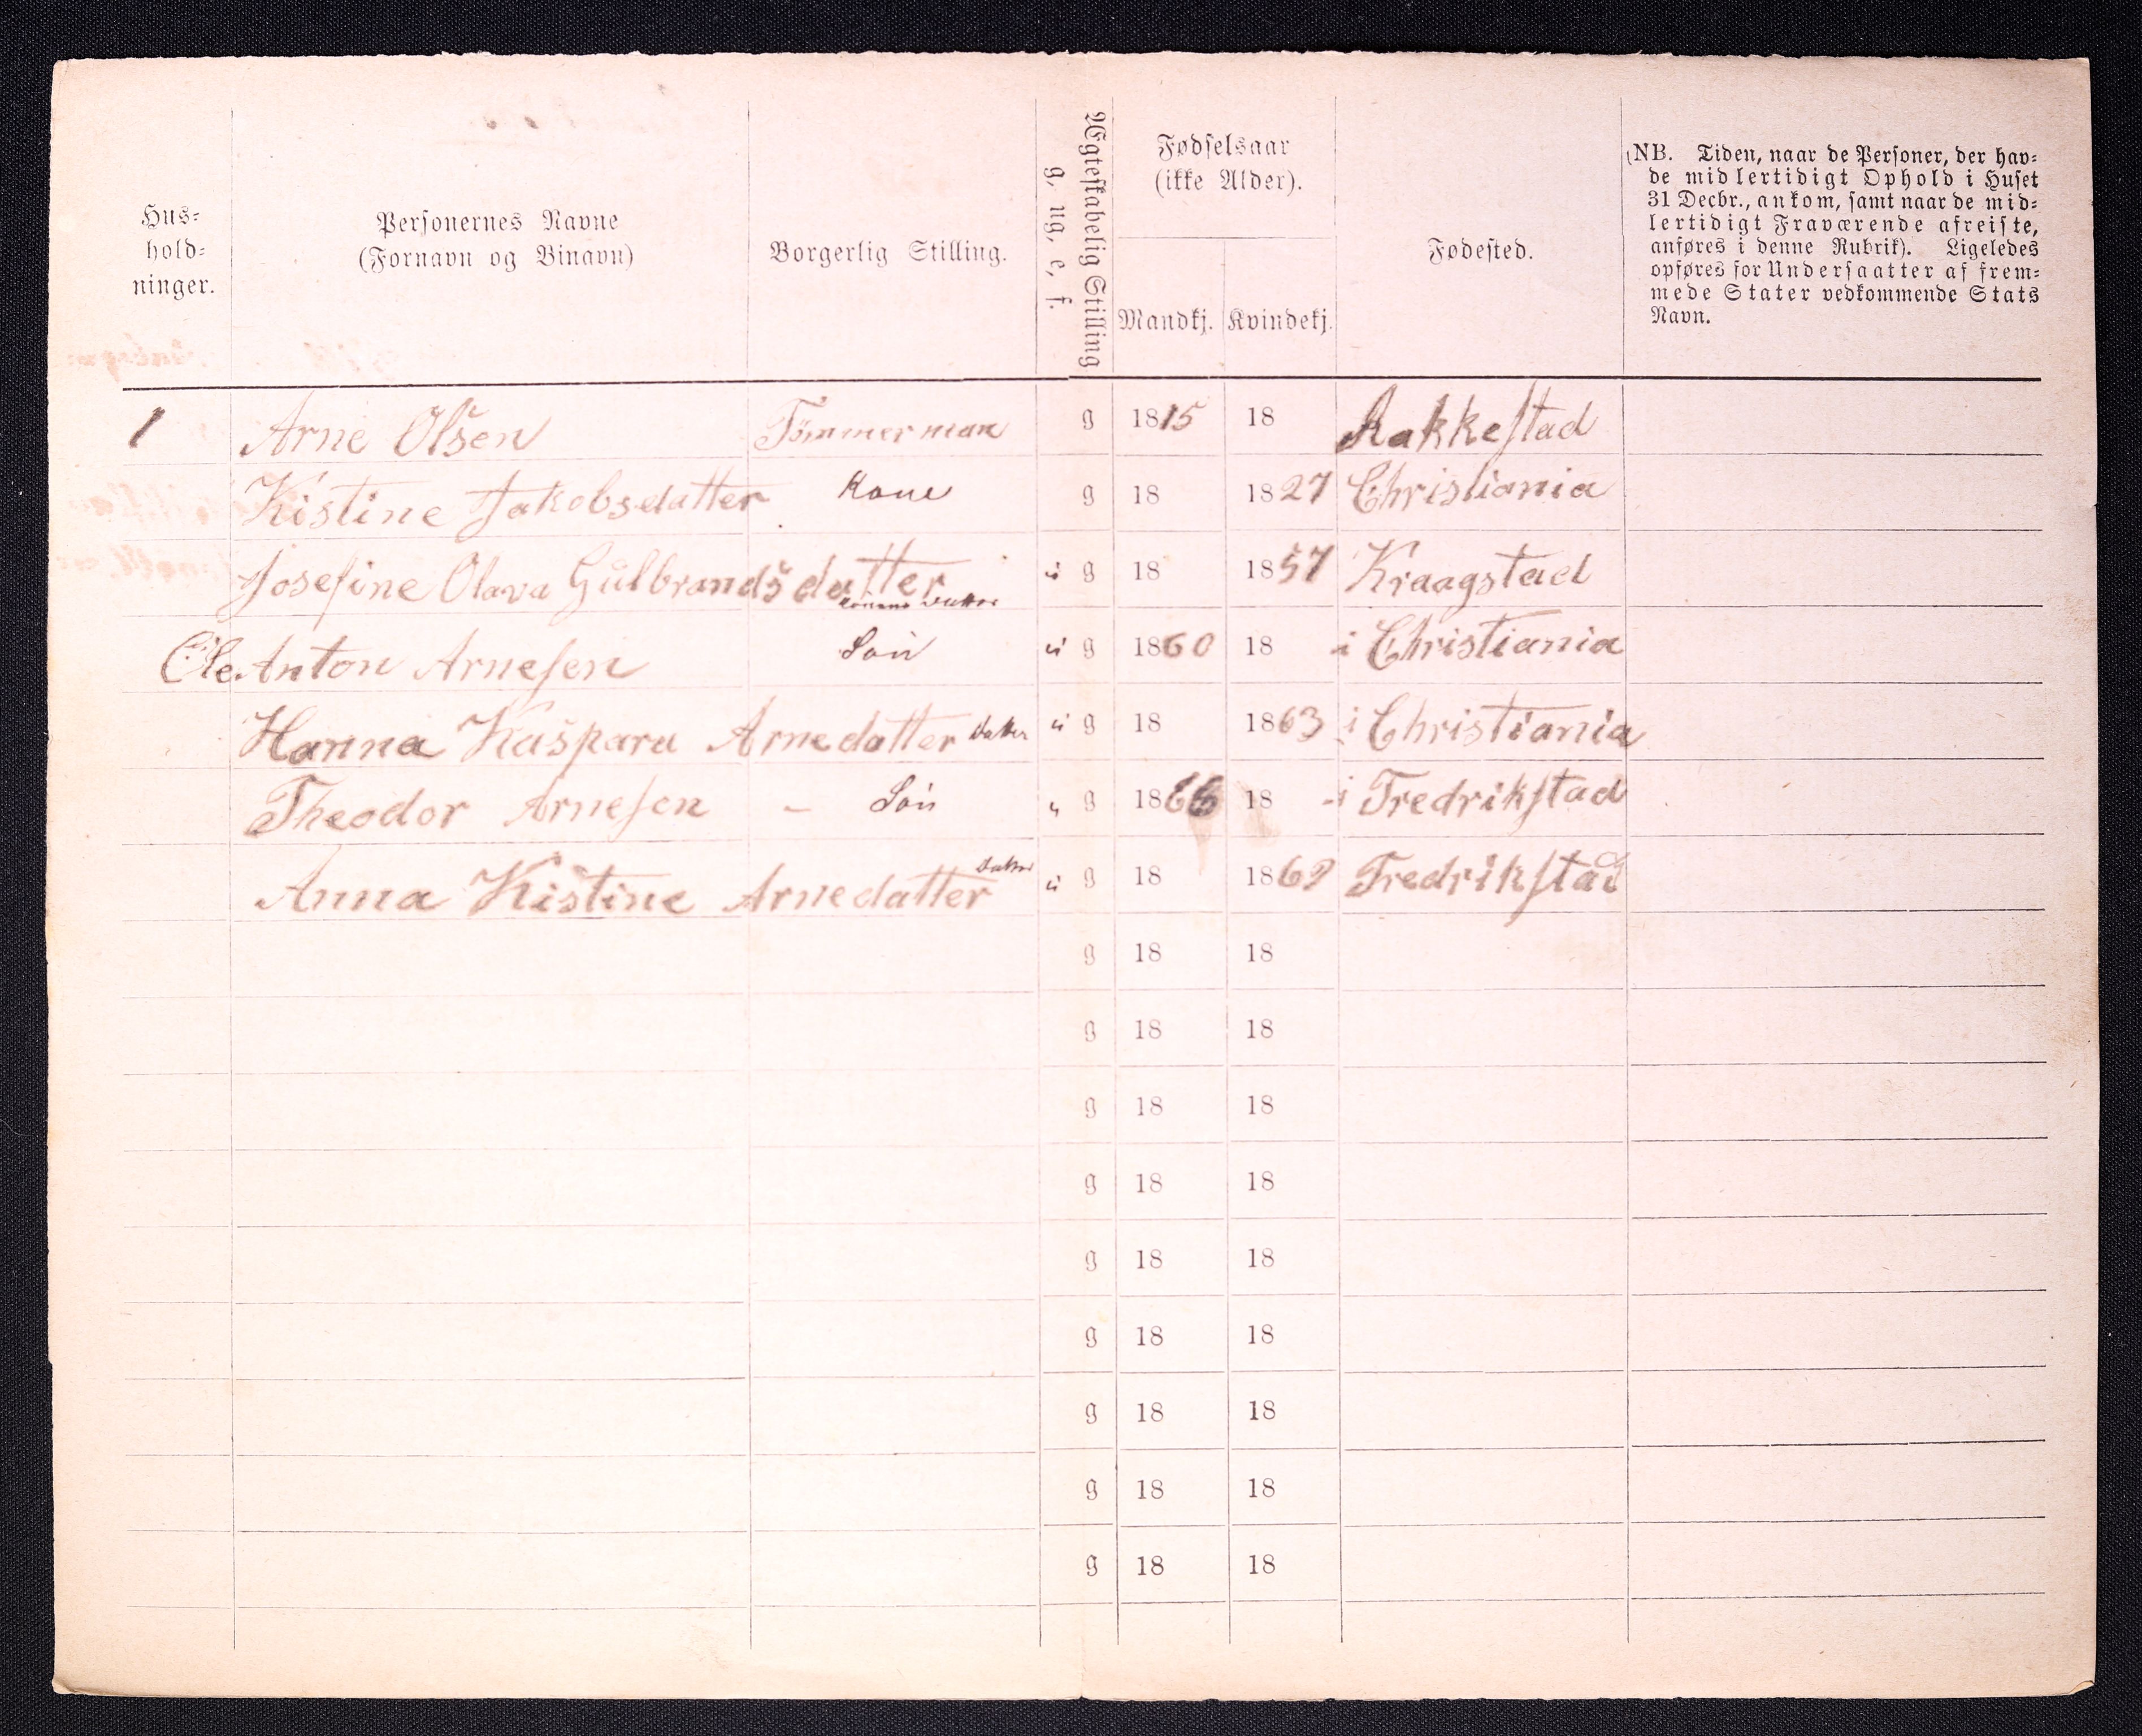 Hus-
hold-
ninger.
Personernes Navne
(Fornavn og Binavn)
Borgerlig Stilling.
Ægteskabelig Stilling
g, ug, e, f.
Fødselsaar
(ikke Alder).
Mandkj. Kvindekj.
Fødested.
(NB. Tiden, naar de Personer, der hav-
de midlertidigt Ophold i Huset
31 Decbr., ankom, samt naar de mid-
lertidigt Fraværende afreiste,
anføres i denne Rubrik). Ligeledes
opføres for Undersaatter af frem-
mede Stater vedkommende Stats
Navn.
1 Arne Olsen Tömmerman g 1815 18 Rakkestad
Kistine Jakobsdatter Kone g 18 1827 Christiania
Josefine Olava Gulbrandsdatter Konens Datter u g 18 1857 Kraagstad
Ole Anton Arnesen Søn u g 1860 18 i Christiania
Hanna Kaspara Arnedatter Datter u g 18 1863 i Christiania
Theodor Arnesen - Søn " g 1866 18 - i Fredrikstad
Anna Kistine Arnedatter Datter u g 18 1869 Fredrikstad
g 18 18
g 18 18
g 18 18
g 18 18
g 18 18
g 18 18
g 18 18
g 18 18
g 18 18